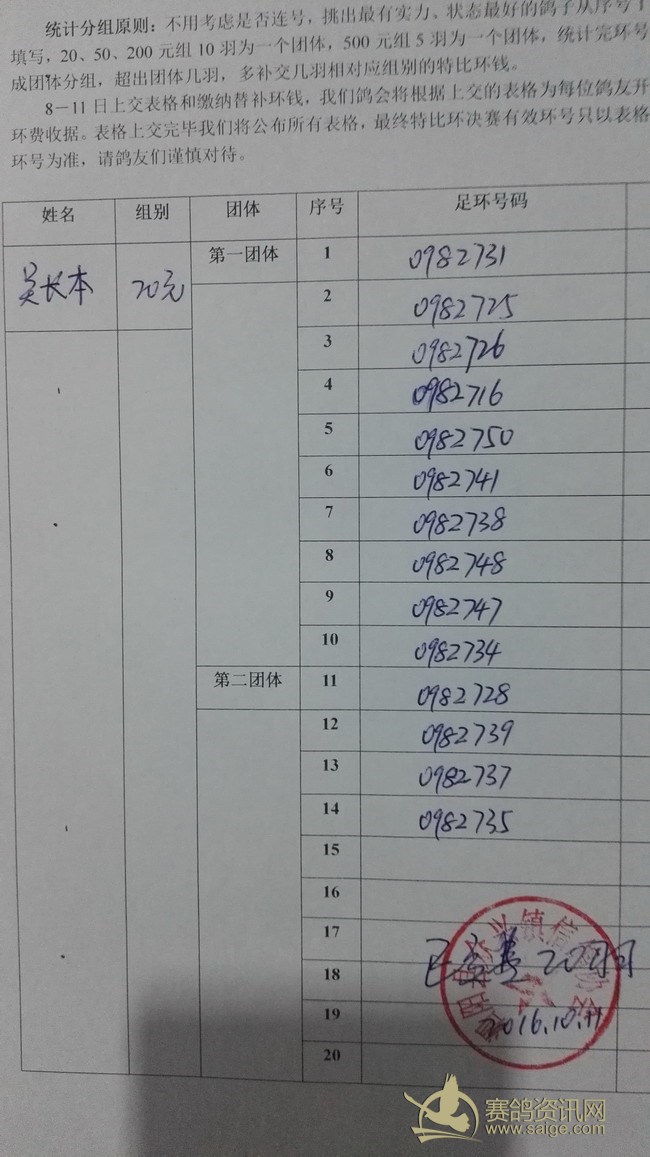 统计分组原则：不用考虑是否连号，挑出最有实力、状态最好的鸽子从序号1
填写，20、50、200 元组 10 羽为一个团体，500 元组 5 羽为一个团体，统计完环号
成团体分组，超出团体几羽，多补交几羽相对应组别的特比环钱。
8－11 日上交表格和缴纳替补环钱，我们鸽会将根据上交的表格为每位鸽友开
环费收据。表格上交完毕我们将公布所有表格，最终特比环决赛有效环号只以表格
环号为准，请鸽友们谨慎对待。
姓名 组别 团体 序号 足环号码
吴长本 20元 第一团体 1 0982731
2 0982725
3 0982726
4 0982716
5 0982750
6 0982741
7 0982738
8 0982748
9 0982747
10 0982734
第二团体 11 0982728
12 0982739
13 0982737
14 0982735
15
16
17
18
19
20
兴镇信鸽
2016.10.11
赛鸽资讯网
www.saige.com